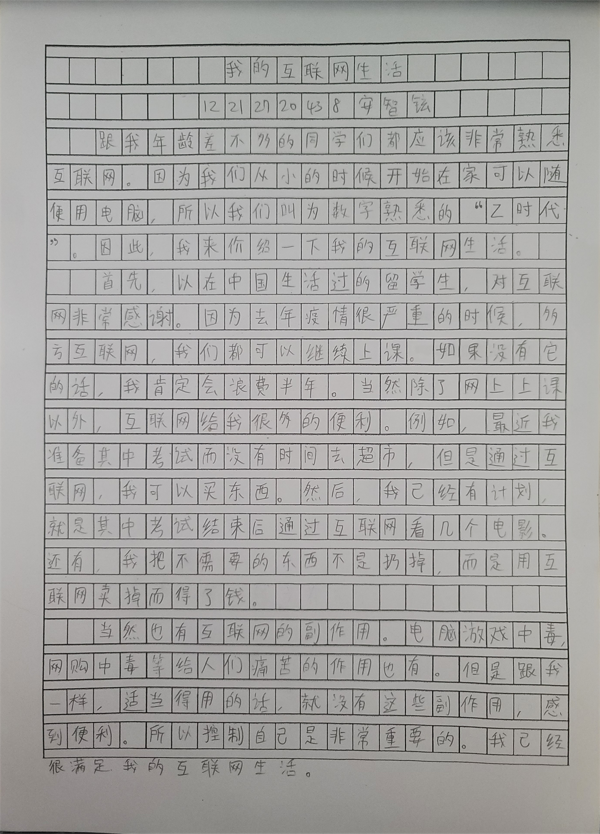 我的互联网生活
12212720438 安智铉
跟我年龄差不多的同学们都应该非常熟悉
互联网。因为我们从小的时候开始在家可以随
便用电脑，所以我们叫为数字熟悉的“Z时代
”。因此，我来介绍一下我的互联网生活。
首先，以在中国生活过的留学生，对互联
网非常感谢。因为去年疫情很严重的时候，多
亏互联网，我们都可以继续上课。如果没有它
的话，我肯定会浪费半年。当然除了网上上课
以外，互联网给我很多的便利。例如，最近我
准备其中考试而没有时间去超市，但是通过互
联网，我可以买东西。然后，我己经有计划，
就是其中考试结束后通过互联网看几个电影。
还有，我把不需要的东西不是扔掉，而是用互
联网卖掉而得了钱。
当然也有互联网的副作用。电脑游戏中毒，
网购中毒等给人们痛苦的作用也有。但是跟我
一样，适当得用的话，就没有这些副作用，感
到便利。所以控制自己是非常重要的。我己经
很满足我的互联网生活。